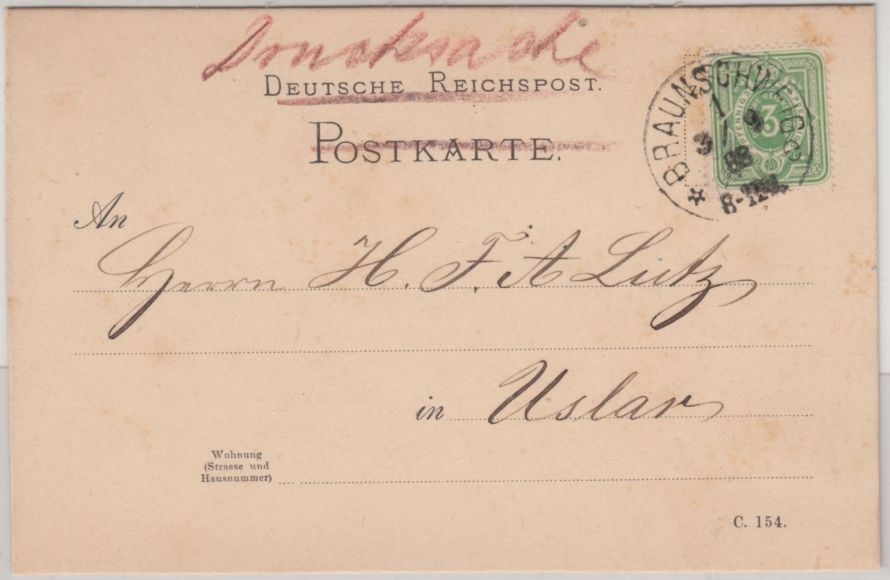 Drucksache
DEUTSCHE REICHSPOST.
POSTKARTE.
BRAUNSCHWEIG
8-12
3
An
Herrn H. F. A Lutz
in Uslar
Wohnung
(Strasse und
Hausnummer)
C. 154.